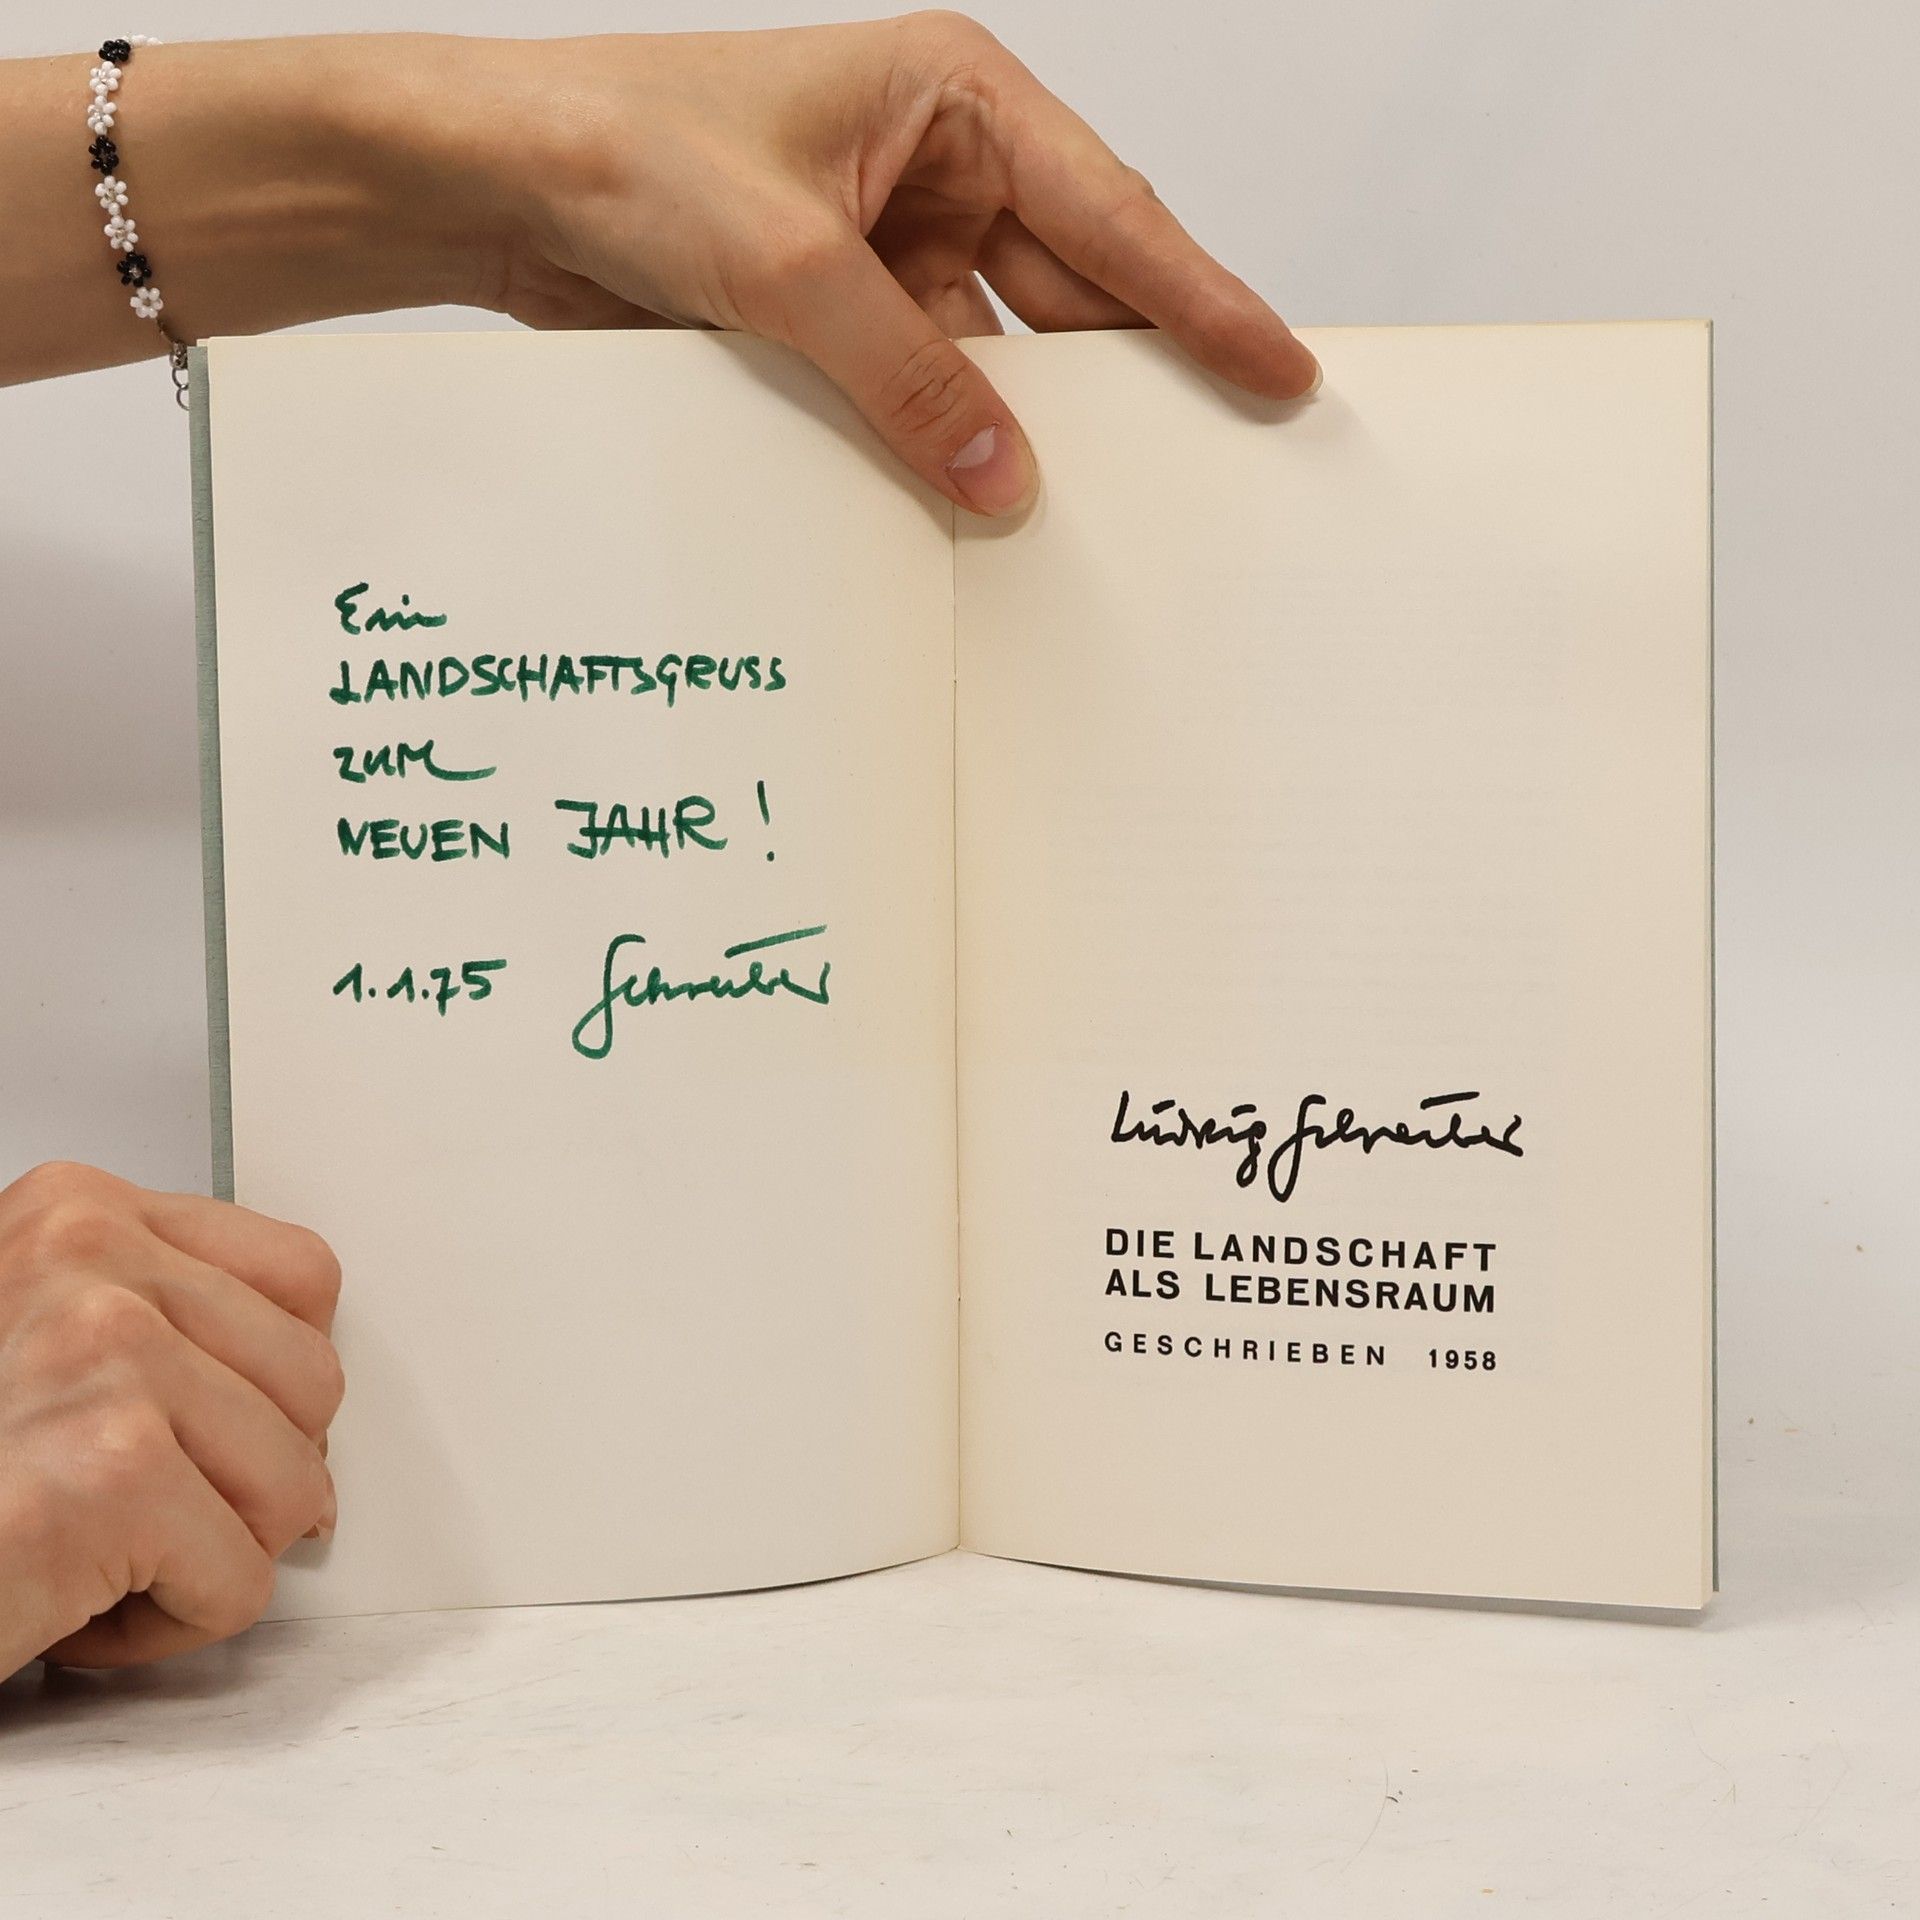 Ein
LANDSCHAFTSGRUSS
zum
NEUEN JAHR !
1.1.75 Schreiber
Ludwig Schreiber
DIE LANDSCHAFT
ALS LEBENSRAUM
GESCHRIEBEN 1958